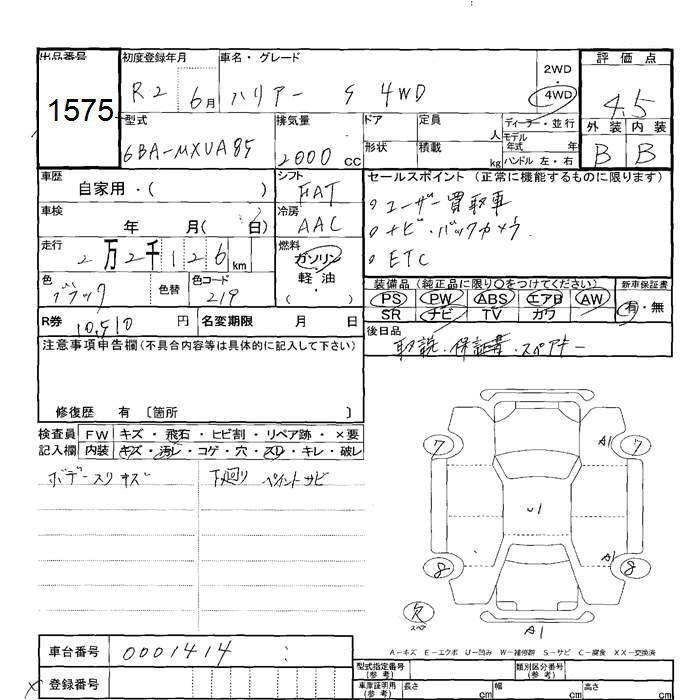 出品番号 初度登録年月 車名・グレード 2WD・4WD 評価点
1575 R2 6月 ハリアー S 4WD 4.5
型式 排気量 ドア 定員 人 ディーラー・並行 外装 内装
6BA-MXUA85 2000 CC 形状 積載 kg モデル年式 年 ハンドル 左・右 B B
車歴 自家用・( ) シフト FAT セールスポイント (正常に機能するものに限ります)
車検 年 月( 日) 冷房 AAC ユーザー買取車
走行 2万2千126km 燃料 ガソリン・軽油 ナビ・バックカメラ
ETC
色 ブラック 色替 色コード 219
装備品 (純正品に限り○をつけてください) 新車保証書
PS PW ABS エアB AW 有・無
SR ナビ TV カワ
R券 10,910円 名変期限 月 日 後日品
取説・保証書・スペアキー
注意事項申告欄 (不具合内容等は具体的に記入して下さい)
修復歴 有 〔箇所 〕
検査員 FW キズ・飛石・ヒビ割・リペア跡・×要
記入欄 内装 キズ・汚レ・コゲ・穴・スリ・キレ・破レ
ボデースリキズ 下廻り ペイントサビ
7 A1 7
U1
8 A1 8
欠 スペア A1
A-キズ E-エクボ U-凹み W-補修跡 S-サビ C-腐食 XX-交換済
車台番号 0001414
型式指定番号(参考) 類別区分番号(参考)
登録番号 車庫証明用(参考) 長さ cm 幅 cm 高さ cm